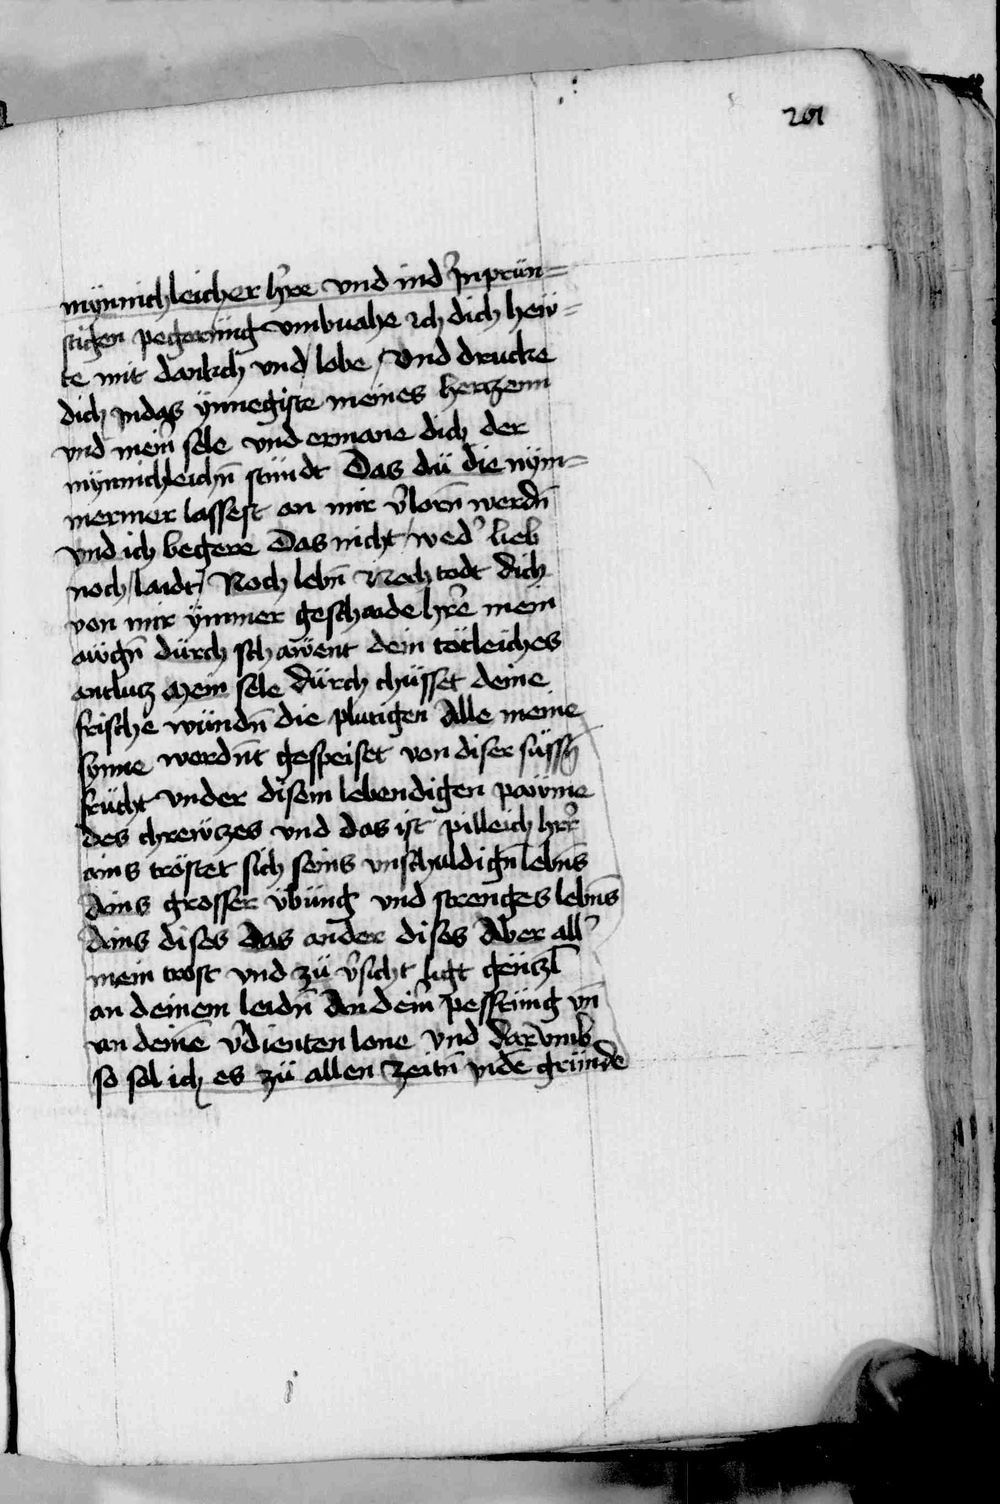 201
mynnichleicher h̾re vnd ind̾ Jnprün=
stigen pegerung vmbuahe ich dich hew=
te mit dankch vnd lobe / Vnd drucke
dich Jndas ynnegiste meines herczenn
vnd mein̄ sele vnd ermane dich der
mynnichleichn̄ stundt Das dü die nym=
mermer lassest an mir v̾lorn̄ werdn̄
vnd ich begere Das nicht / wed̾ lieb
noch / laidt / Noch lebn̄ Noch todt dich
von mir ymmer geschaide h̾re mein
awgn̄ dürch schawent dein tötleiches
antlucz Mein sele dürch chüsset deine
frische wündn̄ die plutigen Alle meine
synne werdn̄t gespeiset von diser süssn̄
frücht vnder disem lebendigen pawme
des chrewczes vnd das ist pilleich h̾re
ains tröstet sich seins vnschuldign̄ lebn̄s
Ains grosser übüng vnd strenges lebn̄s
Ains dises Das ander dises Aber all̾
mein trost vnd zü v̾sicht ligt gënczl̄
an deinem leidn̄ An dein̄ pessrüng vn̄
an deinē v̾dienten lone vnd darvmb
so sol ich es zü allen zeitn̄ jndē gründe